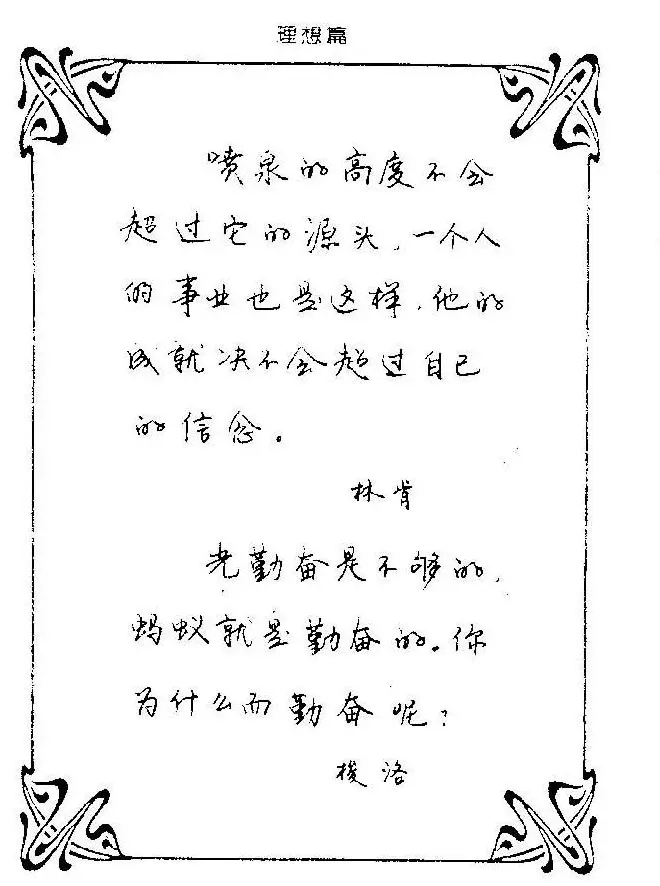 理想篇
喷泉的高度不会
超过它的源头，一个人
的事业也是这样，他的
成就决不会超过自己
的信念。
林肯
光勤奋是不够的，
蚂蚁就是勤奋的。你
为什么而勤奋呢？
梭洛